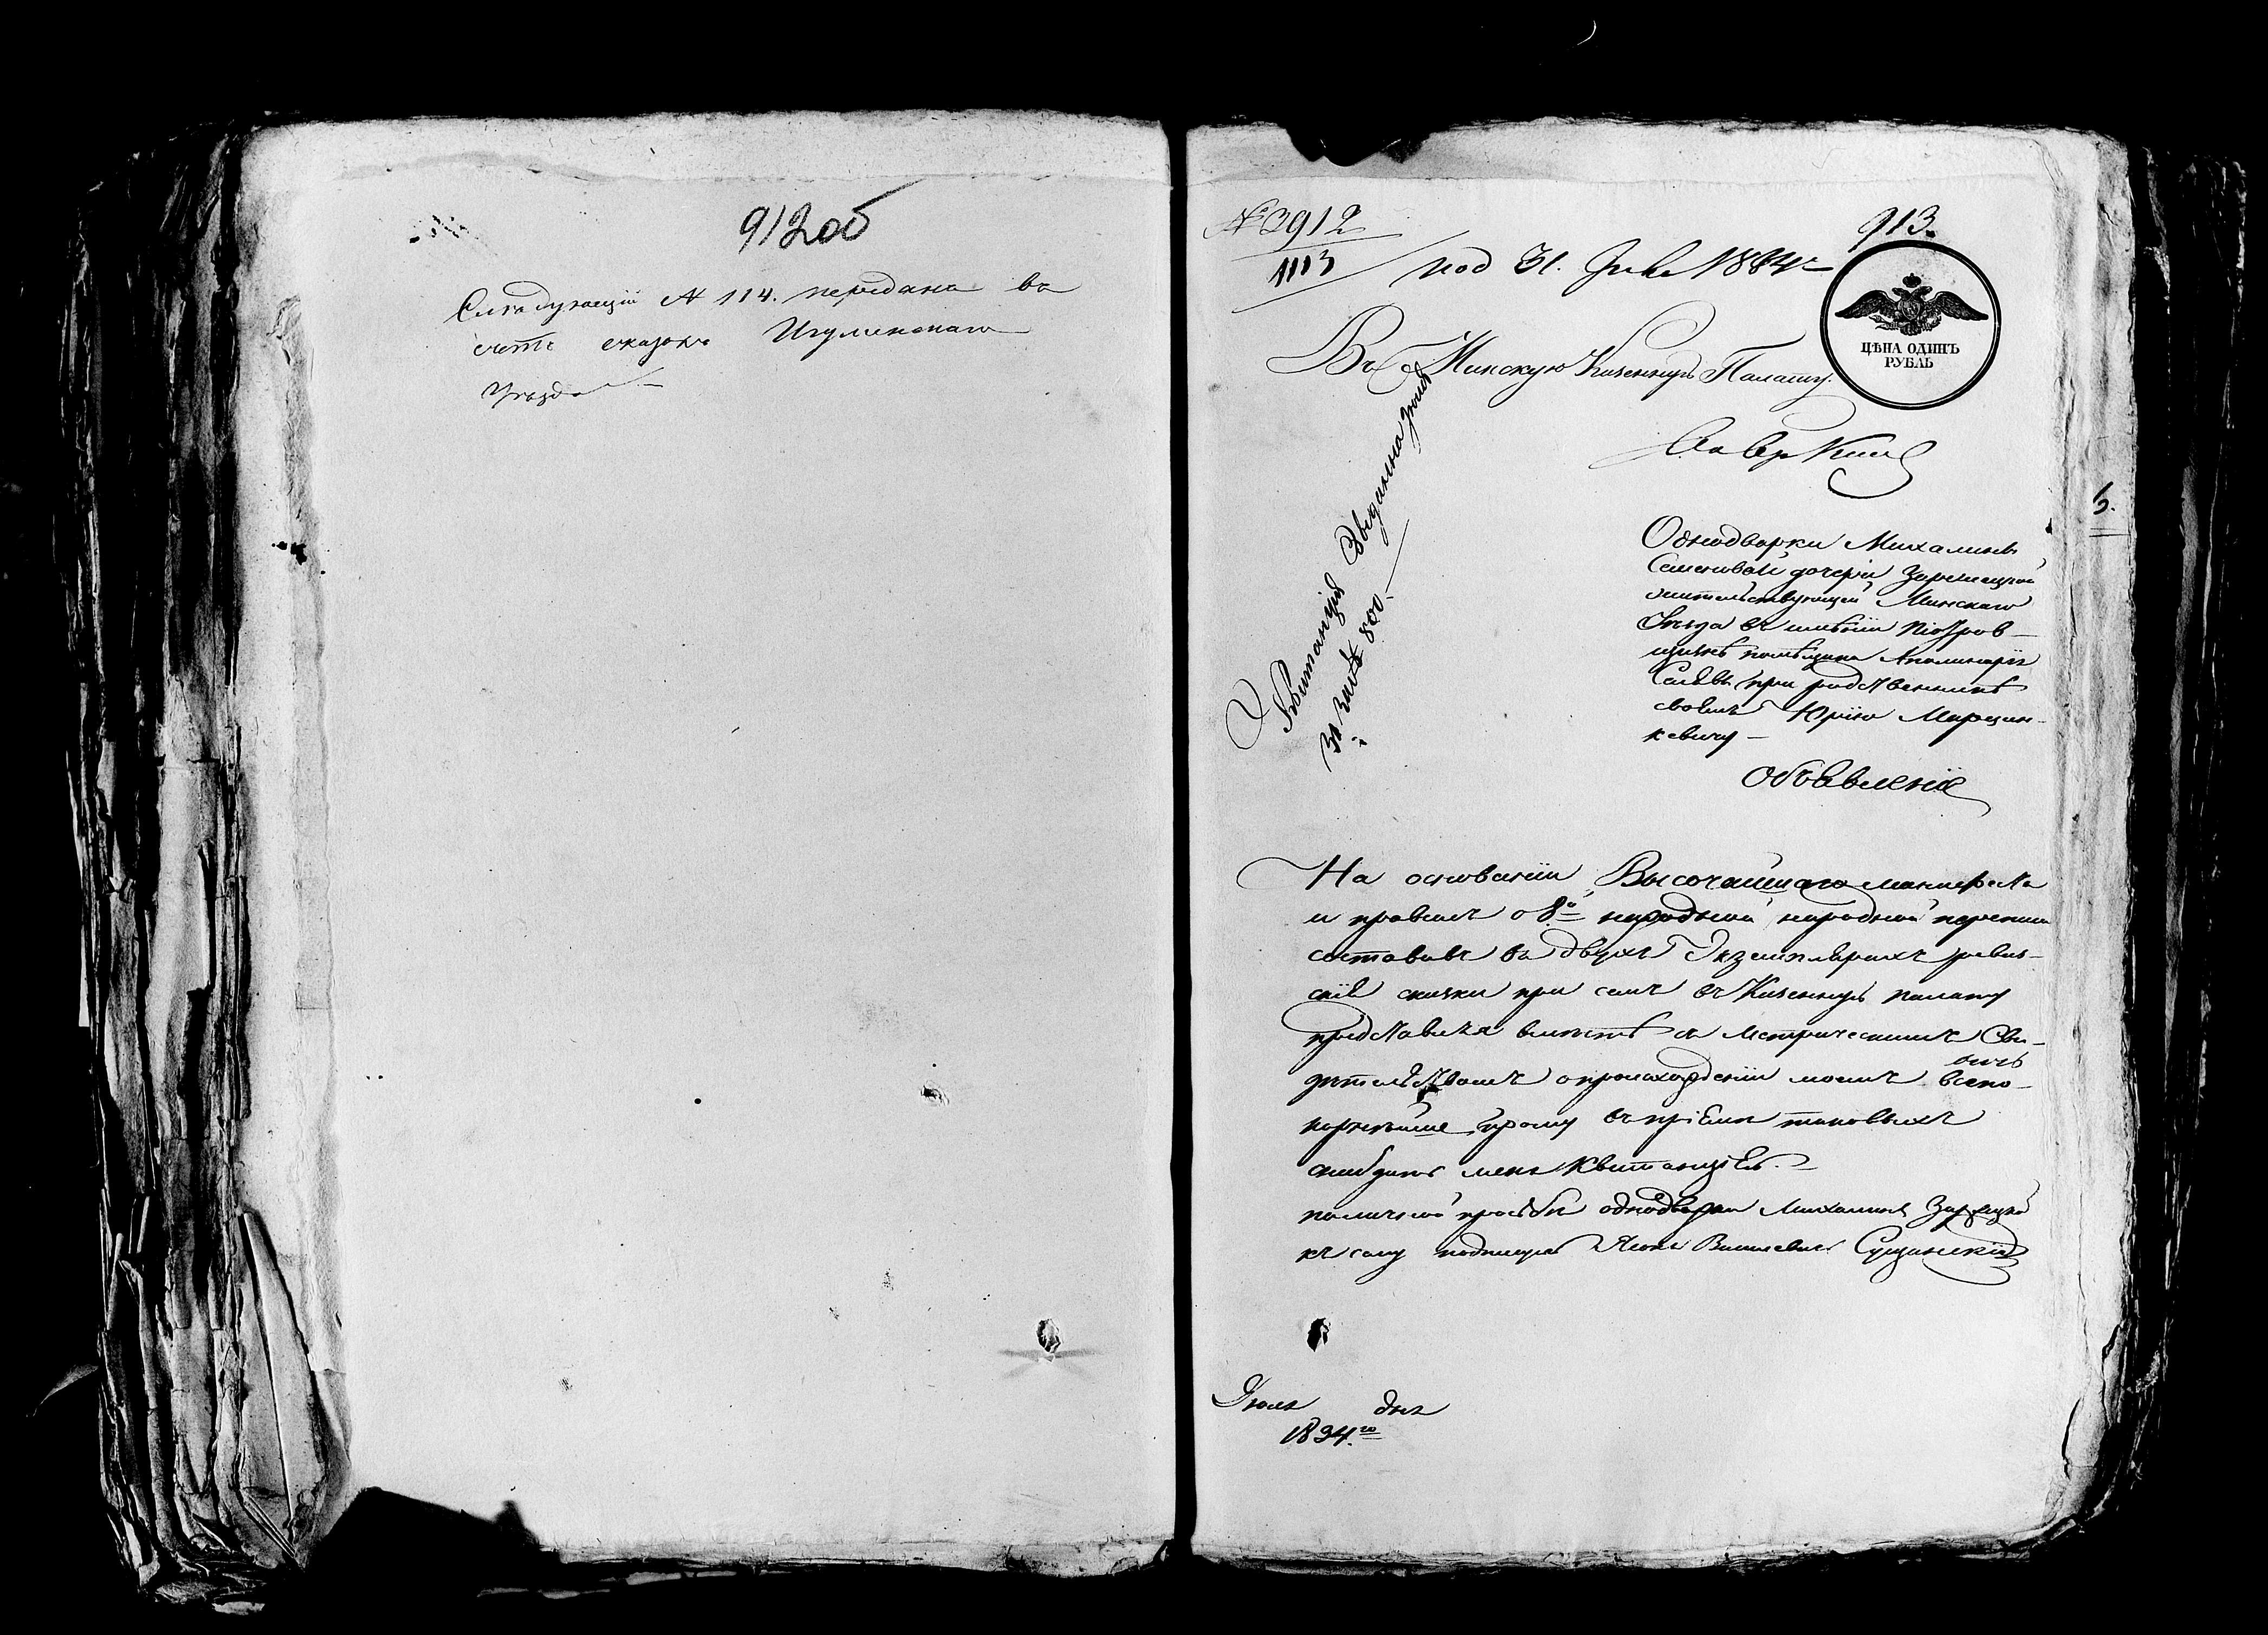 912 об
Следующий № 114. передана въ
счетъ сказокъ Игуменскаго
Уезда
№ 3912
1113
913.
под 31. Июля 1834 г
ЦѢНА ОДИНЪ
РУБЛЬ
Въ Минскую Казенную Палату.
Квитанція выдана
за № 800.
5.
Однодворки Михалины
Семеновой дочери Зарецкой
жительствующей Минскаго
Уезда въ имѣніи Піотров-
щизнѣ помѣщика Аполинарія
при родственникѣ
своемъ Юрію Марцин-
кевичу
Объявленіе
На основаніи Высочайшаго манифеста
и правилъ о 8й народной народной переписи
составивъ въ двухъ Экземплярахъ ревиз-
скіе сказки при семъ въ Казенную палату
представляя вместѣ съ Метрическимъ Сви-
детельствомъ о происхожденіи моемъ всепо-
корнейше прошу въ пріеме таковыхъ
снабдить меня Квитанціею.
по личной просьбы однодворки Михалины Зарецкой
къ сему подписуюсь Сущинскій
Июля дня
1834.го